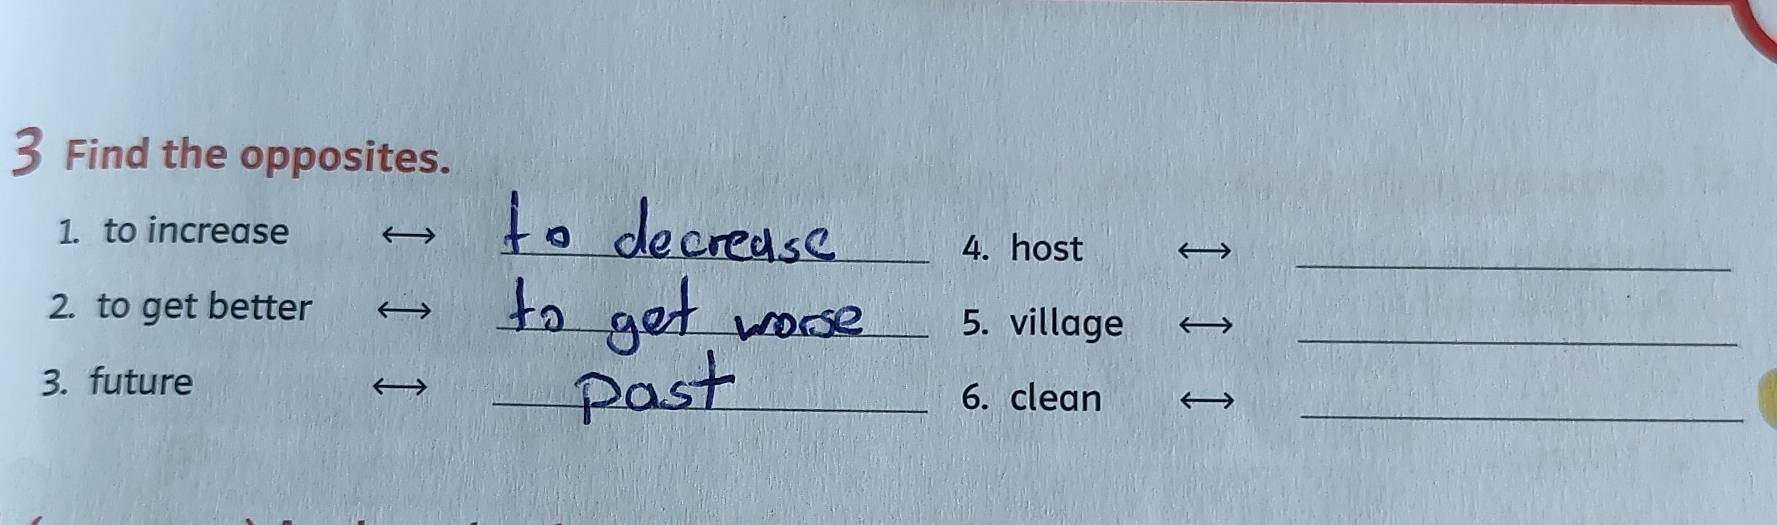 3 Find the opposites.
1. to increase ↔ to decrease
2. to get better ↔ to get worse
3. future ↔ past
4. host ↔
5. village ↔
6. clean ↔